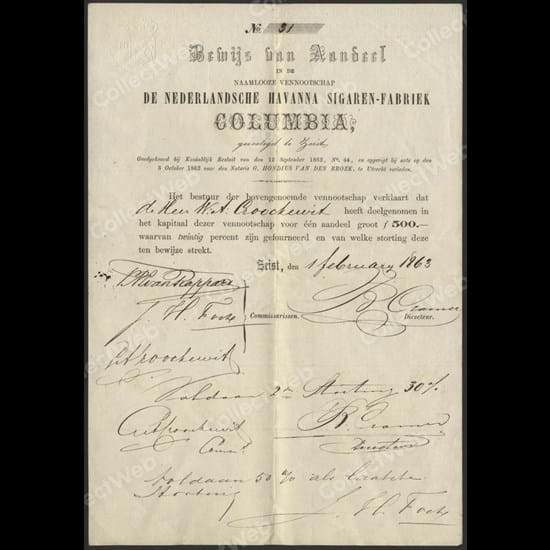 No. 31
Bewijs van Aandeel
IN DE
NAAMLOOZE VENNOOTSCHAP
DE NEDERLANDSCHE HAVANNA SIGAREN-FABRIEK
COLUMBIA,
gevestigd te Zeist
Goedgekeurd bij Koninklijk Besluit van den 12 September 1862, No. 44, en opgerigt bij acte op den
3 October 1862 voor den Notaris G. HONDIUS VAN DEN BROEK, te Utrecht verleden.
Het bestuur der bovengenoemde vennootschap verklaart dat
de Heer W. A. Croockewit heeft deelgenomen in
het kapitaal dezer vennootschap voor één aandeel groot ƒ 500.—
waarvan twintig percent zijn gefourneerd en van welke storting deze
ten bewijze strekt.
Zeist, den 1 february 1863
van Rappard
J. H. Fock
Commissarissen.
R Cramer
Directeur.
Croockewit
Voldaan 2de Storting 30%
Croockewit
R. Cramer
Comms
Directeur
Voldaan 50 % als laatste
Storting
J. H. Fock
CollectWeb